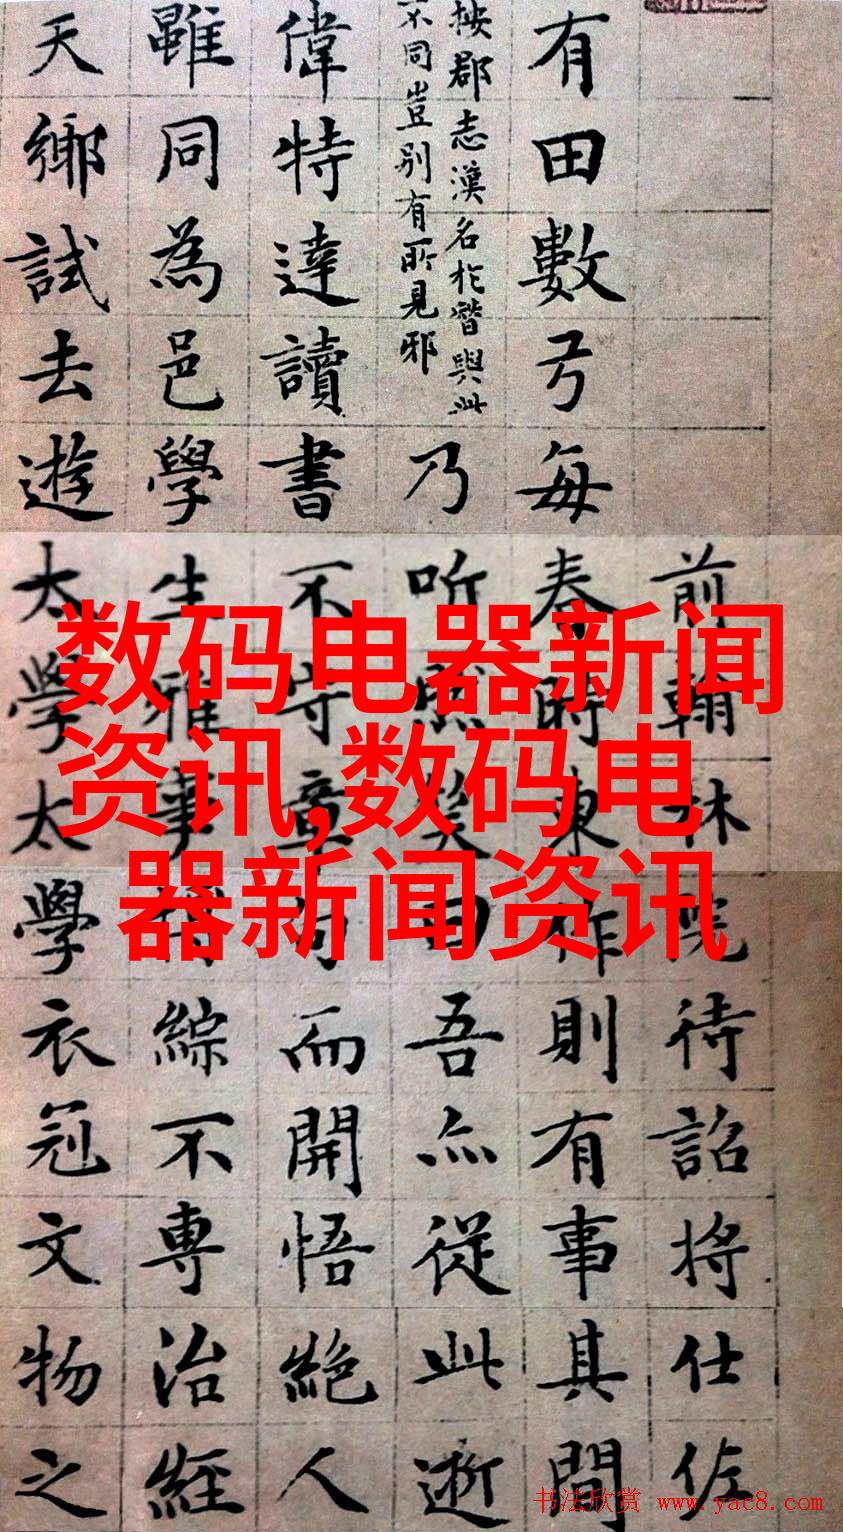 前翰林院待詔將仕佐
有田數弓每春時東作則有事其間
按郡志漢名於潛與此
不同豈別有所見邪
乃听然笑曰吾亦從此逝
偉特達讀書不守章句而開悟絕人
雖同為邑學生雅事博綜不專治經
天鄉試去遊太學太學衣冠文物之
数码电器新闻
资讯,数码电
器新闻资讯
书法欣赏 www.yac8.com